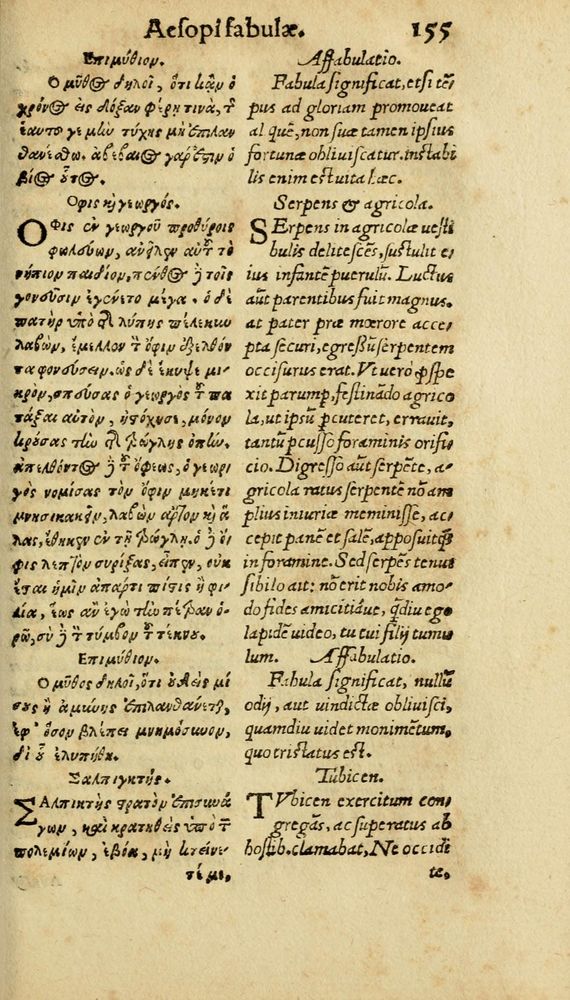 Aesopi fabulæ. 155
Επιμύθιον.
Ο μῦθος δηλοῖ, ὅτι κἂν ὁ
χρόνος εἰς δόξαν φέρῃ τινὰ, τῆς
ἑαυτοῦ γε μὴν τύχης μὴ ἐπιλαν
θανέσθω. ἀβέβαιος γὰρ ἐστιν ὁ
βίος οὗτος.
Οφις καὶ γεωργός.
ΟΦις ἐν γεωργοῦ προθύροις
φωλεύων, ἀνεῖλεν αὐτοῦ τὸ
νήπιον παιδίον, πένθος δὲ τοῖς
γονεῦσιν ἐγένετο μέγα. ὁ δὲ
πατὴρ ὑπὸ τῆς λύπης πέλεκυν
λαβὼν, ἔμελλον τὸν ὄφιν ἐξελθόν
τα φονεύσειν. ὡς δὲ ἔκυψε μι
κρὸν, σπεύσας ὁ γεωργὸς τοῦ πα
τάξαι αὐτὸν, ἠστόχησε, μόνον
κρούσας τὴν τῆς τρώγλης ὀπήν.
ἀπελθόντος δὲ τοῦ ὄφεως, ὁ γεωρ
γὸς νομίσας τὸν ὄφιν μηκέτι
μνησικακεῖν, λαβὼν ἄρτον καὶ ἅ
λας, ἔθηκεν ἐν τῇ τρώγλῃ. ὁ δὲ ὄ
φις λεπτὸν συρίξας, εἶπεν, οὐκ
ἔσται ἡμῖν ἀπάρτι πίστις ἢ φι
λία, ἕως ἂν ἐγὼ τὴν πέτραν ὁ-
ρῶ, σὺ δὲ τὸν τύμβον τοῦ τέκνου.
Επιμύθιον.
Ο μῦθος δηλοῖ, ὅτι οὐδεὶς μί
σους ἢ ἀμύνης ἐπιλανθάνεται,
ἐφ' ὅσον βλέπει μνημόσυνον,
δι' οὗ ἐλυπήθη.
Σαλπιγκτής.
ΣΑλπικτὴς στρατὸν ἐπισυνά
γων, καὶ κρατηθεὶς ὑπὸ τῶν
πολεμίων, ἐβόα, μὴ κτείνε
τέ με,
Affabulatio.
Fabula significat, etsi tẽ-
pus ad gloriam promoueat
al quẽ, non suæ tamen ipsius
fortunæ obliuiscatur. instabi
lis enim est uita hæc.
Serpens & agricola.
SErpens in agricolæ uesti
bulis delitescẽs, sustulit e-
ius infantẽ puerulũ. Luctus
aũt parentibus fuit magnus.
at pater præ mœrore acce-
pta securi, egressũ serpentem
occisurus erat. Vt uerò pspe
xit parump, festinãdo agrico
la, ut ipsũ pcuteret, errauit,
tantũ pcusso foraminis orifi
cio. Digresso aũt serpẽte, a-
gricola ratus serpentẽ nõ am
plius iniuriæ meminisse, ac-
cepit panẽ et salẽ, apposuitq;
in foramine. Sed serpẽs tenui
sibilo ait: nõ erit nobis amo-
do fides amicitiáue, qdiu ego
lapidẽ uideo, tu tui filij tumu
lum. Affabulatio.
Fabula significat, nullũ
odij, aut uindictæ obliuisci,
quamdiu uidet monimẽtum,
quo tristatus est.
Tubicen.
TVbicen exercitum con-
gregãs, ac superatus ab
hostib. clamabat, Ne occidi
te,